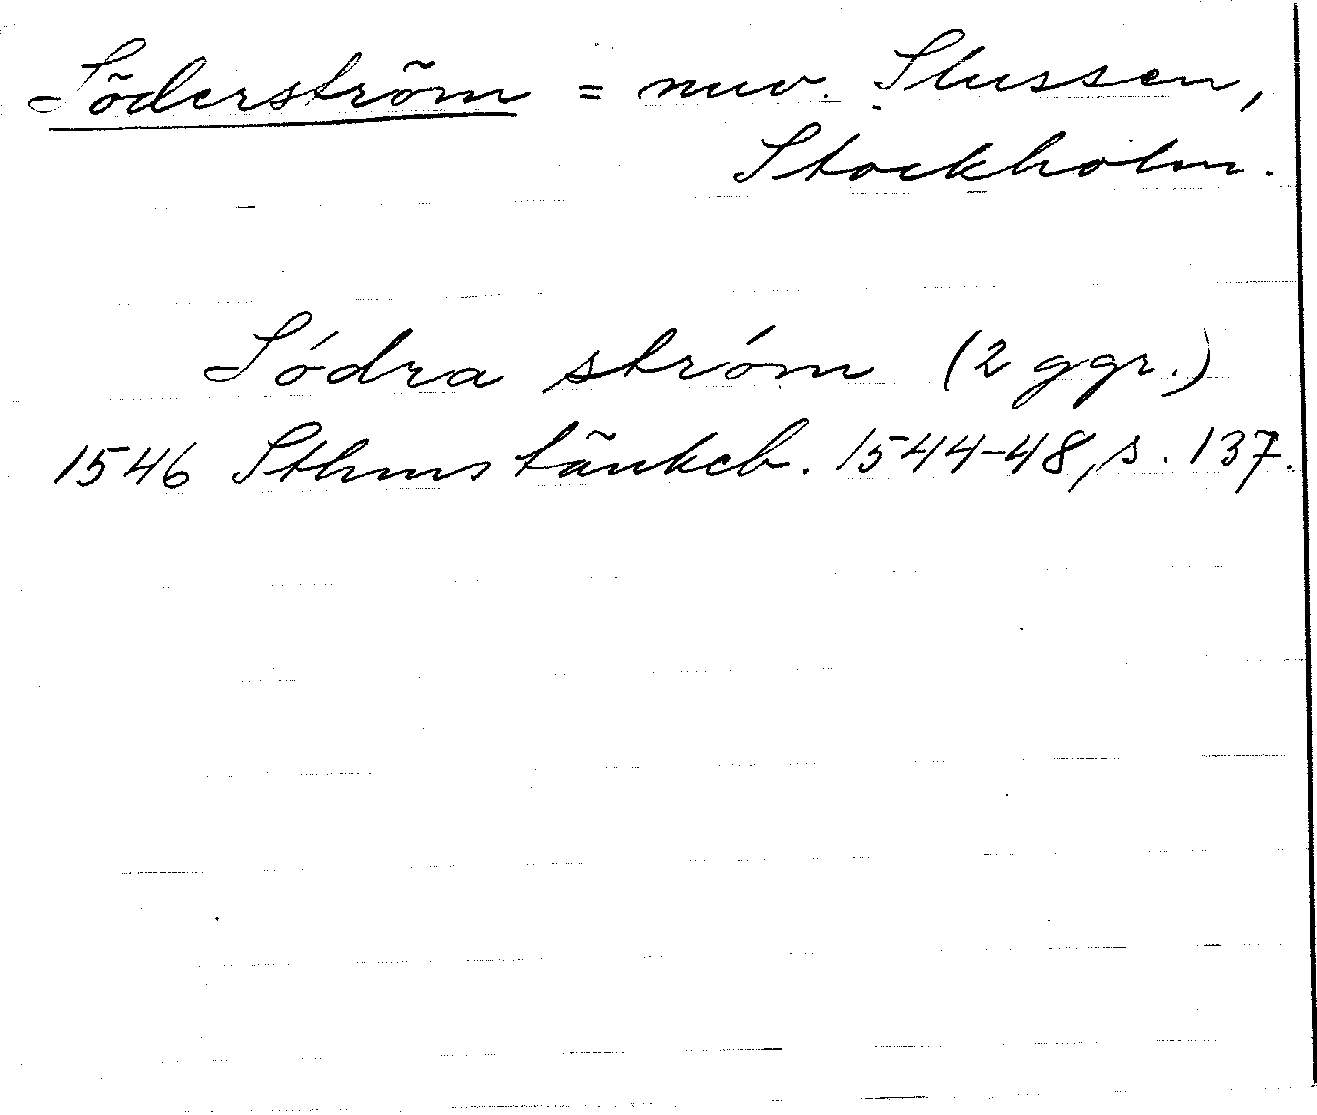 Söderström = nuv. Slussen,
Stockholm.
Sódra stróm (2 ggr.)
1546 Sthms tänkeb. 1544-48, s. 137.